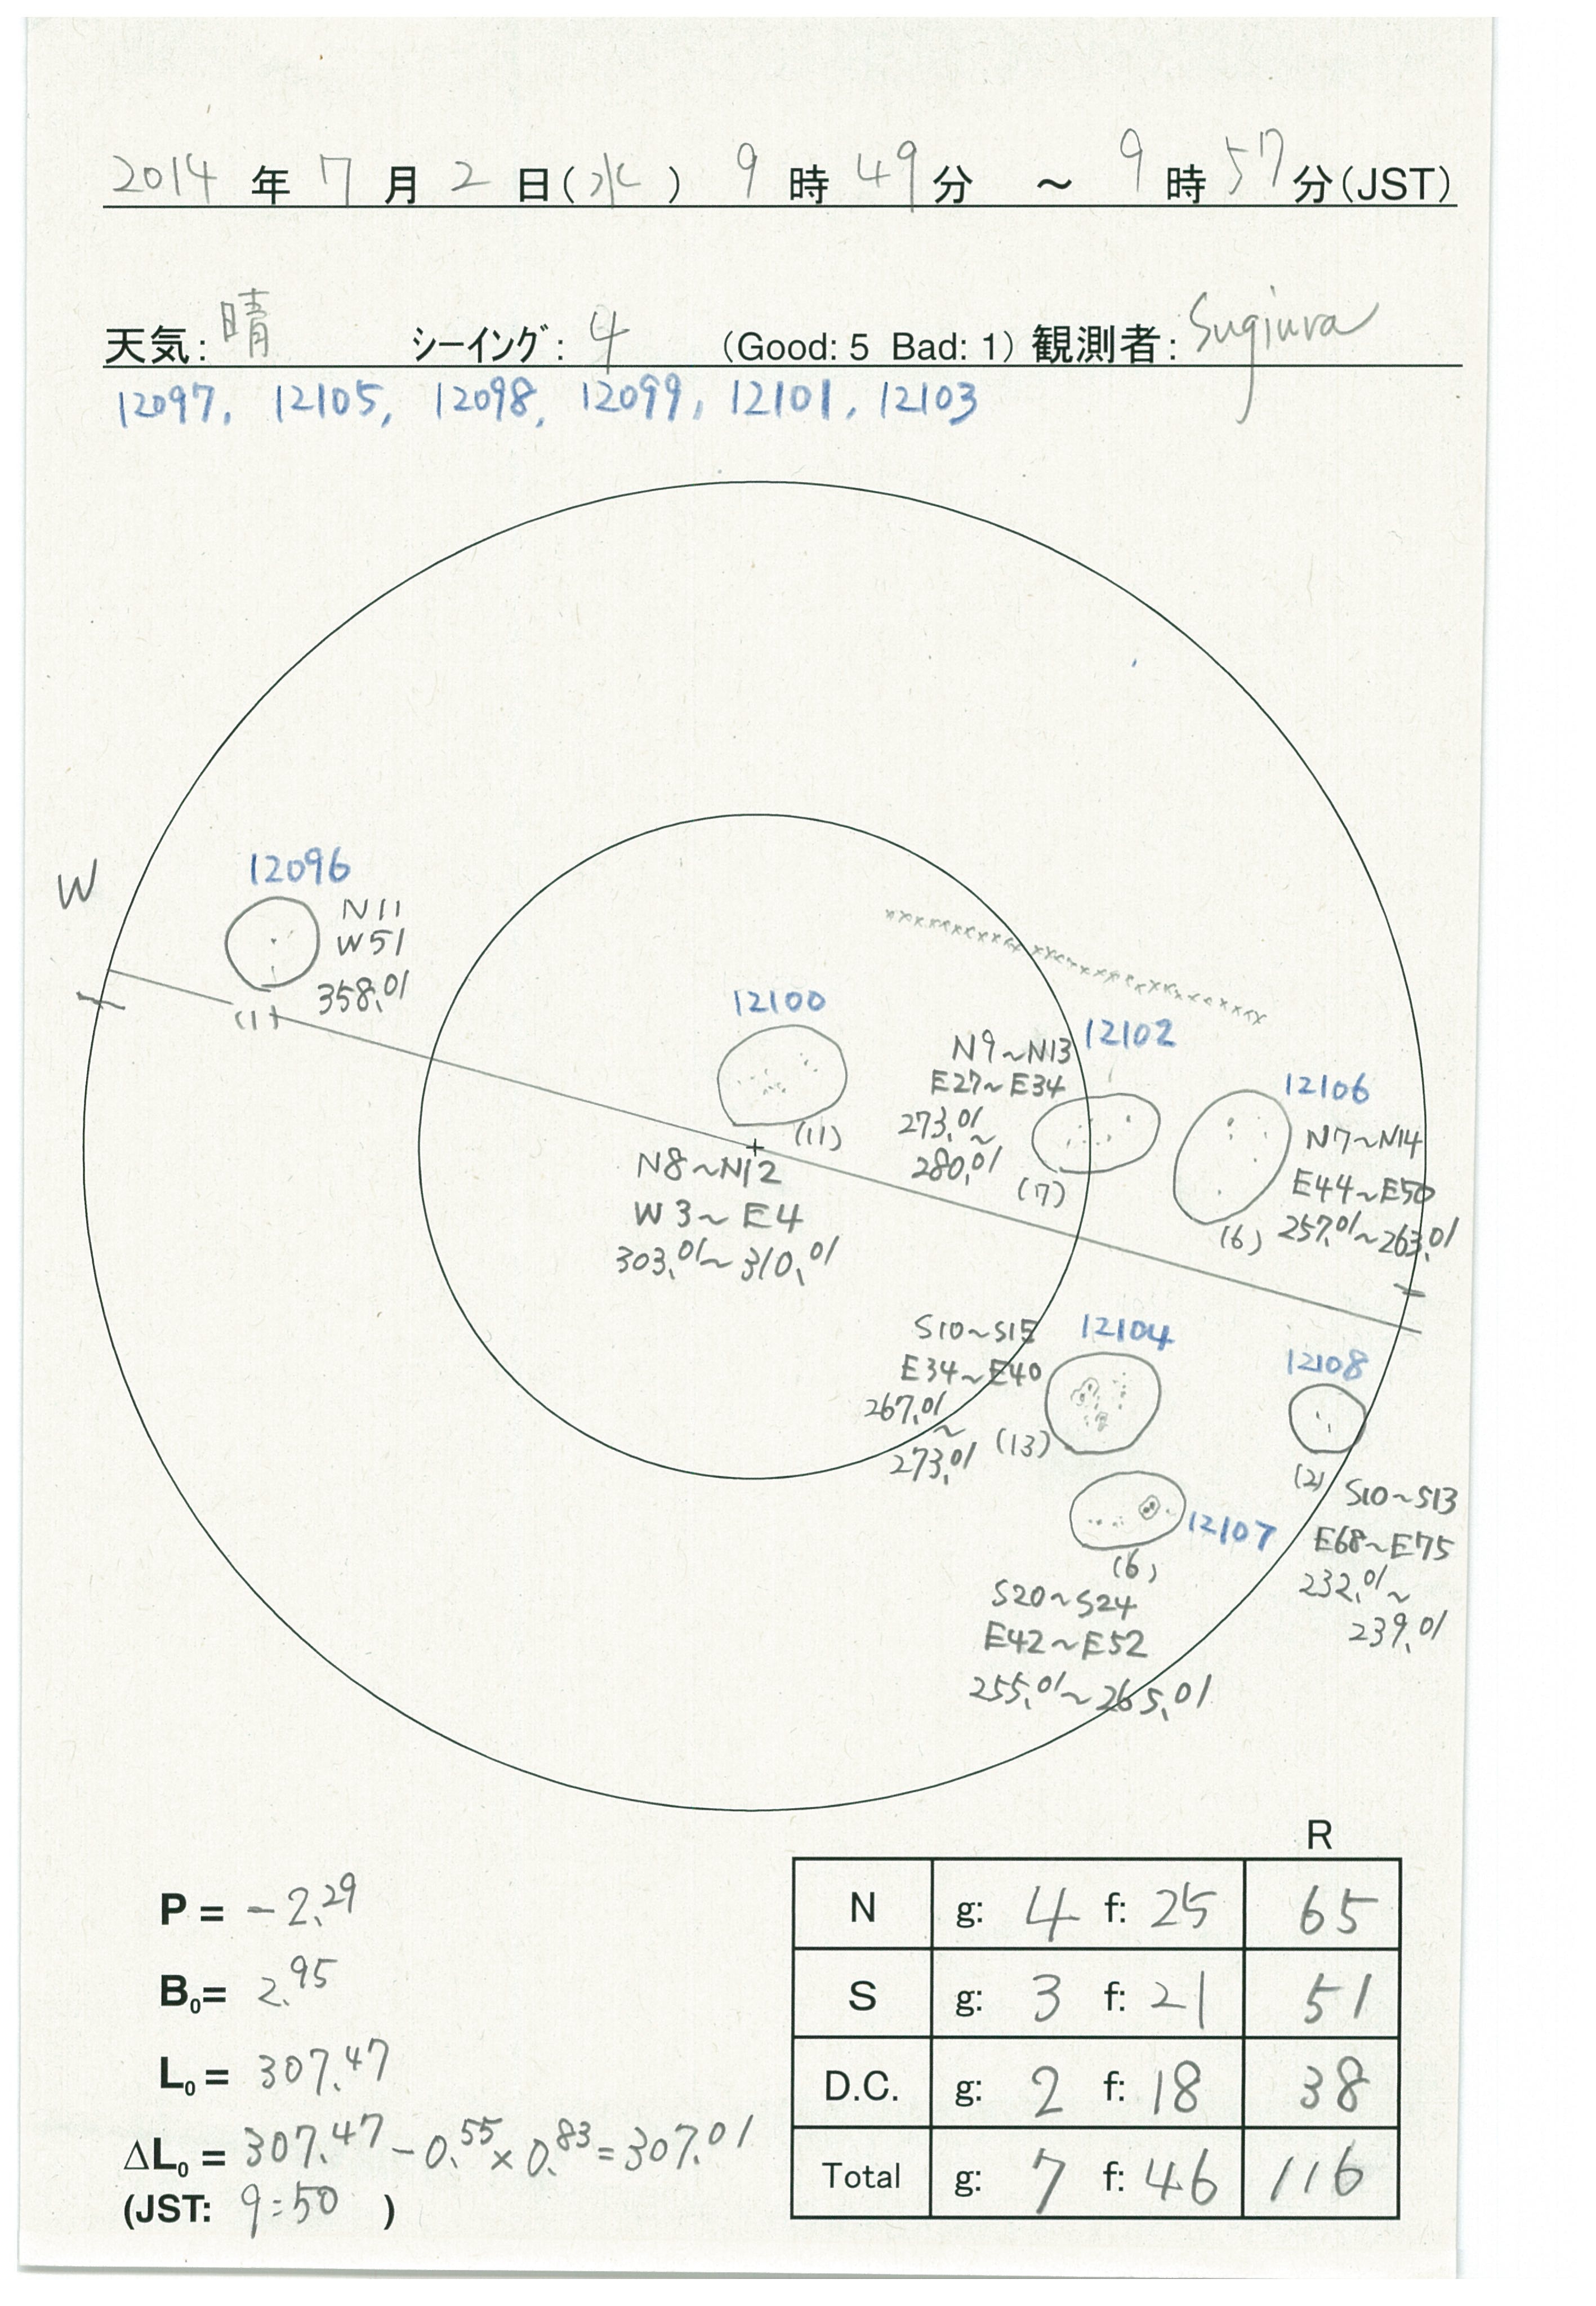 2014 年 7 月 2 日(水) 9 時 49 分 ~ 9 時 57 分(JST)
天気: 晴 シーイング: 4 (Good: 5 Bad: 1) 観測者: Sugiura
12097, 12105, 12098, 12099, 12101, 12103
W
12096
N11
W51
358.01
(1)
12100
(11)
N8~N12
W3~E4
303.01~310.01
12102
N9~N13
E27~E34
273.01
~
280.01
(7)
12106
N7~N14
E44~E50
257.01~263.01
(6)
12104
S10~S15
E34~E40
267.01
~
273.01
(13)
12108
(2)
S10~S13
E68~E75
232.01~
239.01
12107
(6)
S20~S24
E42~E52
255.01~265.01
P = -2.29
B0= 2.95
L0= 307.47
ΔL0= 307.47-0.55×0.83=307.01
(JST: 9:50 )
R
N g: 4 f: 25 65
S g: 3 f: 21 51
D.C. g: 2 f: 18 38
Total g: 7 f: 46 116